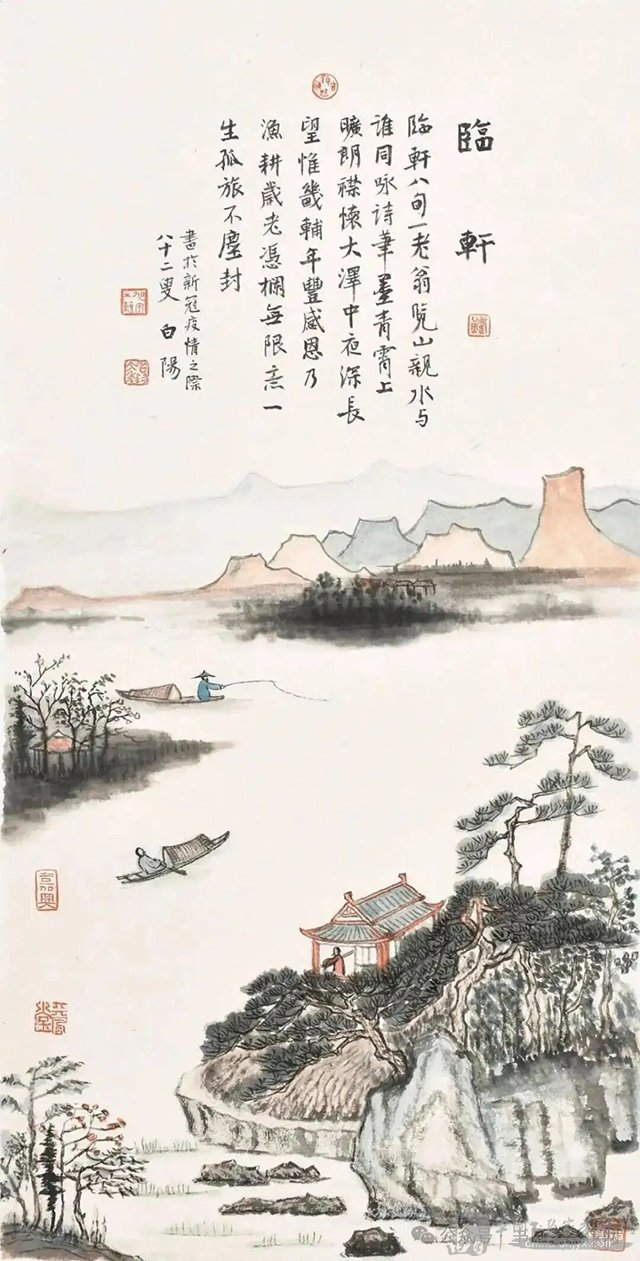 臨軒
臨軒八旬一老翁覽山親水与
誰同咏诗華墨青霄上
曠朗襟懷大澤中夜深長
望惟畿輔年豐感恩乃
漁耕歲老憑欄無限意一
生孤旅不塵封
書於新冠疫情之際
八十二叟 白陽